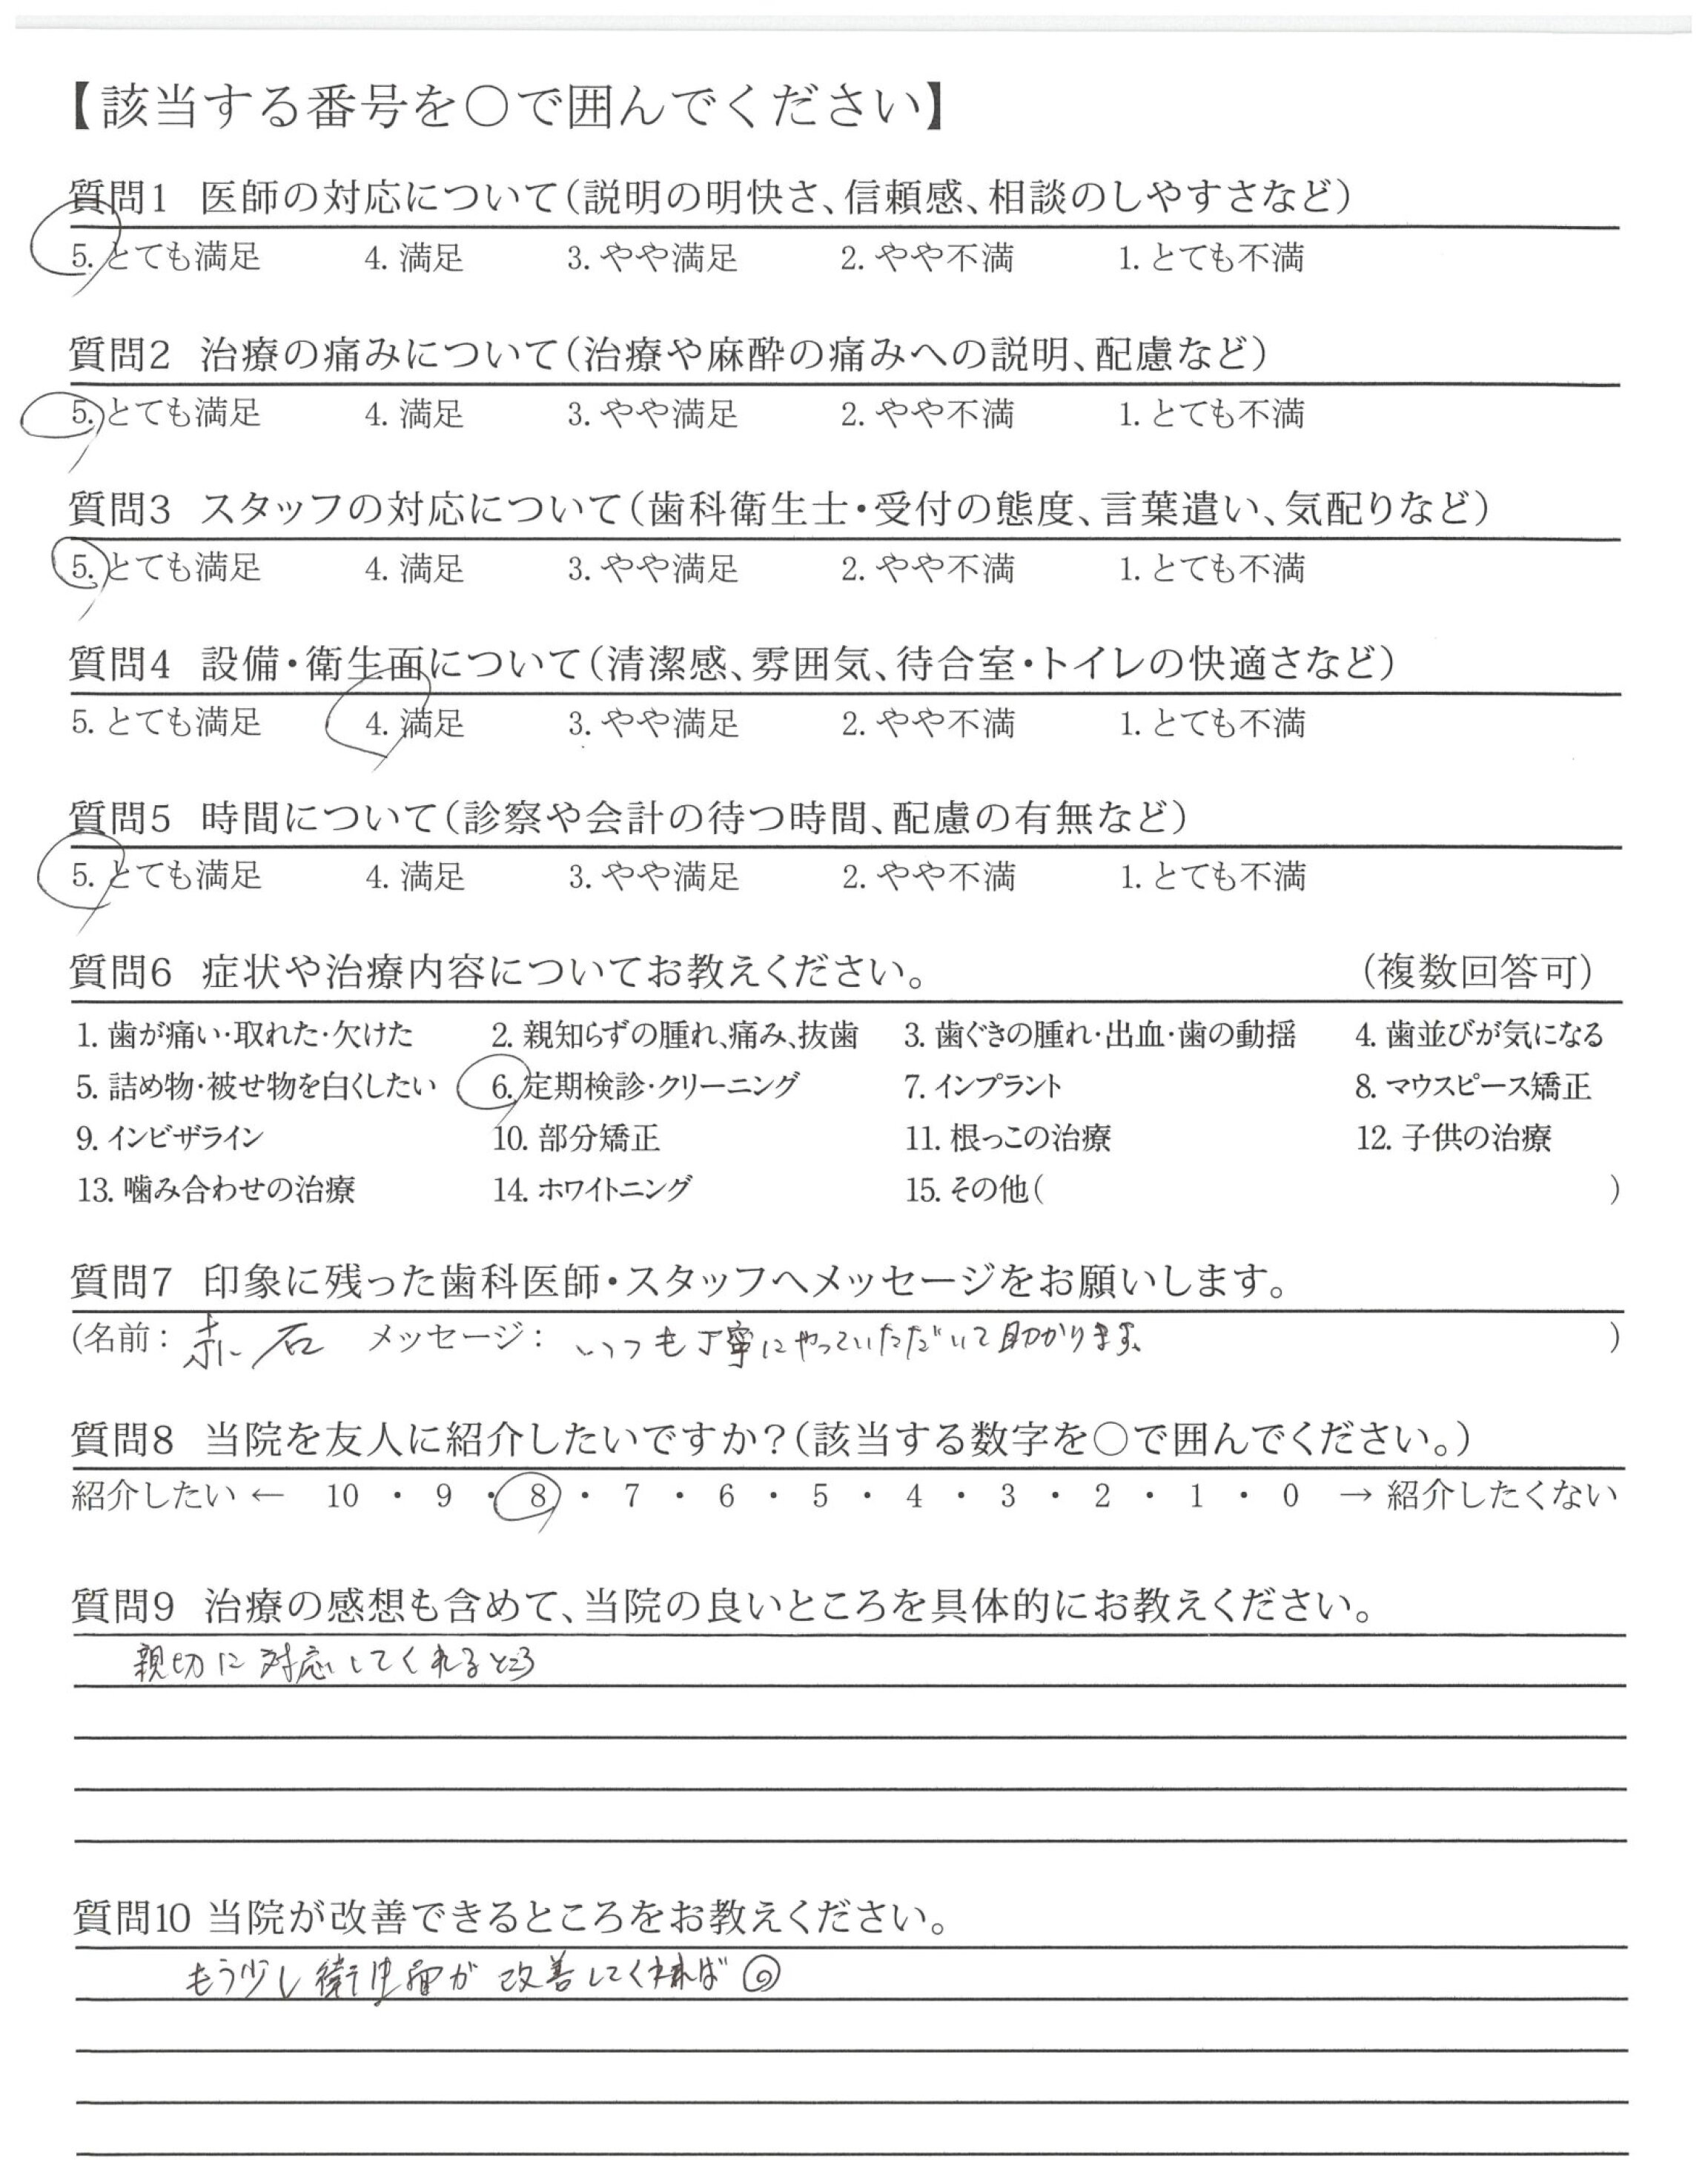 【該当する番号を○で囲んでください】
質問1 医師の対応について(説明の明快さ、信頼感、相談のしやすさなど)
5. とても満足 4. 満足 3. やや満足 2. やや不満 1. とても不満
質問2 治療の痛みについて(治療や麻酔の痛みへの説明、配慮など)
5. とても満足 4. 満足 3. やや満足 2. やや不満 1. とても不満
質問3 スタッフの対応について(歯科衛生士・受付の態度、言葉遣い、気配りなど)
5. とても満足 4. 満足 3. やや満足 2. やや不満 1. とても不満
質問4 設備・衛生面について(清潔感、雰囲気、待合室・トイレの快適さなど)
5. とても満足 4. 満足 3. やや満足 2. やや不満 1. とても不満
質問5 時間について(診察や会計の待つ時間、配慮の有無など)
5. とても満足 4. 満足 3. やや満足 2. やや不満 1. とても不満
質問6 症状や治療内容についてお教えください。 (複数回答可)
1. 歯が痛い・取れた・欠けた 2. 親知らずの腫れ、痛み、抜歯 3. 歯ぐきの腫れ・出血・歯の動揺 4. 歯並びが気になる
5. 詰め物・被せ物を白くしたい 6. 定期検診・クリーニング 7. インプラント 8. マウスピース矯正
9. インビザライン 10. 部分矯正 11. 根っこの治療 12. 子供の治療
13. 噛み合わせの治療 14. ホワイトニング 15. その他( )
質問7 印象に残った歯科医師・スタッフへメッセージをお願いします。
(名前: 赤石 メッセージ: いつも丁寧にやっていただいて助かります。 )
質問8 当院を友人に紹介したいですか?(該当する数字を○で囲んでください。)
紹介したい ← 10 ・ 9 ・ 8 ・ 7 ・ 6 ・ 5 ・ 4 ・ 3 ・ 2 ・ 1 ・ 0 → 紹介したくない
質問9 治療の感想も含めて、当院の良いところを具体的にお教えください。
親切に対応してくれるところ
質問10 当院が改善できるところをお教えください。
もう少し衛生面が改善してくれれば◎